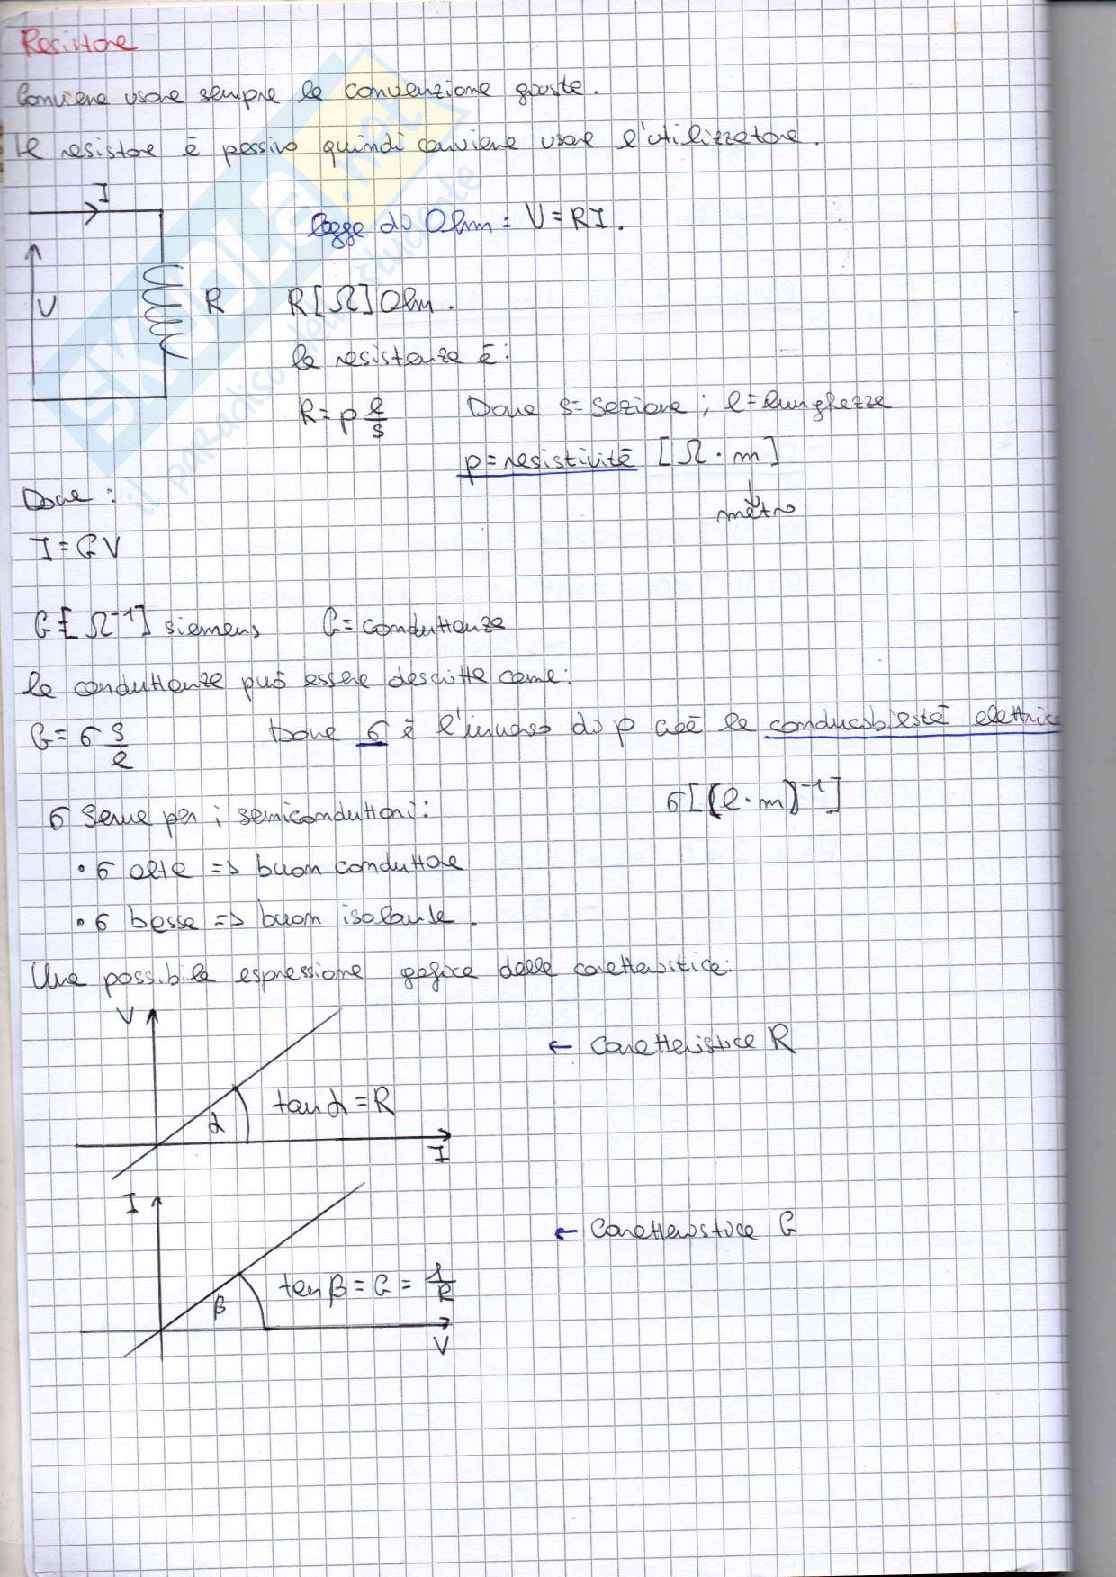 Resistore
Conviene usare sempre la convenzione giusta.
Il resistore è passivo quindi conviene usare l'utilizzatore.
I
Legge di Ohm: V=RI.
V
R
R[Ω]Ohm.
la resistenza è:
R=ρ l/s Dove s=sezione; l=lunghezza
ρ=resistività [Ω·m]
metro
Dove:
I=GV
G=[Ω⁻¹] siemens G=conduttanza
la conduttanza può essere descritta come:
G=σ s/l dove σ è l'inverso di ρ cioè la conducibilità elettrica
σ[(l·m)⁻¹]
σ serve per i semiconduttori:
• σ alta => buon conduttore
• σ bassa => buon isolante.
Una possibile espressione grafica della caratteristica:
V
← Caratteristica R
tan α=R
α
I
I
← Caratteristica G
tan β=G=1/R
β
V
SKUOLA.net
il paradiso dello studente